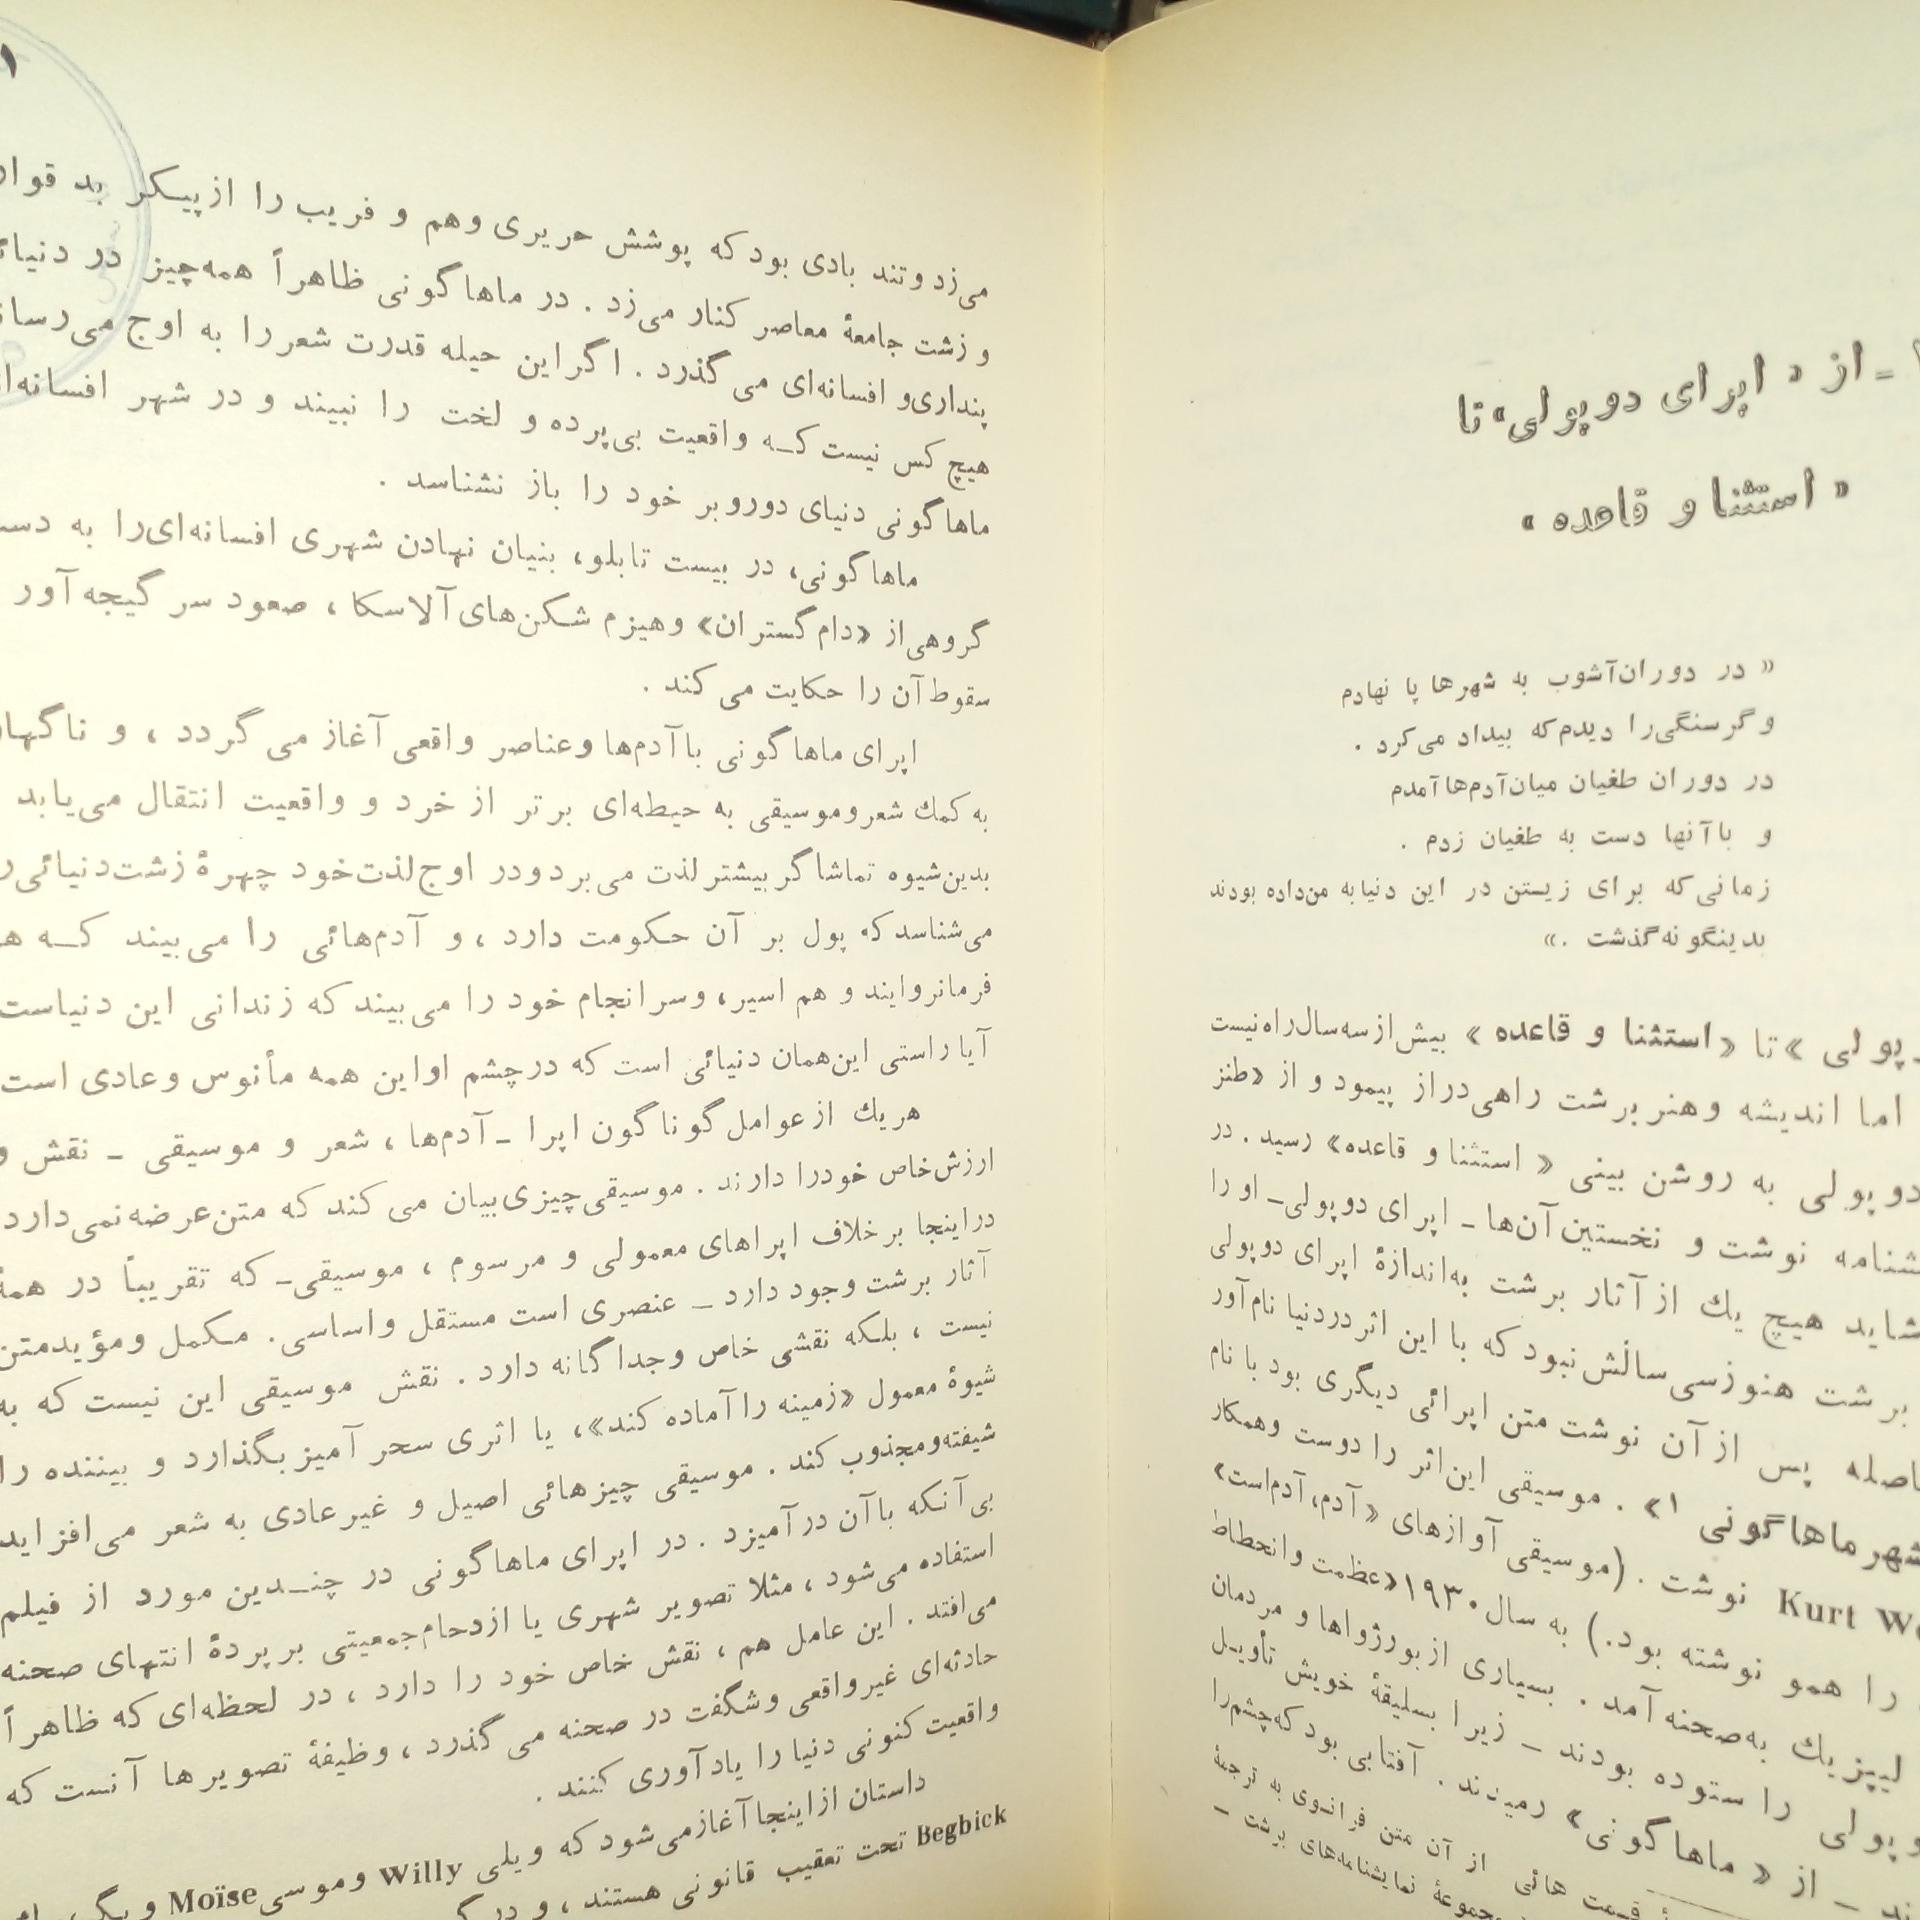 - از «اپرای دوپولی» تا
«استثنا و قاعده»
« در دوران آشوب به شهرها پا نهادم
و گرسنگی را دیدم که بیداد می‌کرد .
در دوران طغیان میان آدم‌ها آمدم
و با آنها دست به طغیان زدم .
زمانی که برای زیستن در این دنیا به من داده بودند
بدینگونه گذشت .»
پولی » تا « استثنا و قاعده » بیش از سه سال راه نیست
اما اندیشه و هنر برشت راهی دراز پیمود و از «طنز
دوپولی به روشن بینی « استثنا و قاعده» رسید . در
نوشت و نخستین آن‌ها ـ اپرای دوپولی ـ او را
شاید هیچ یك از آثار برشت به‌اندازهٔ اپرای دوپولی
برشت هنوز سی سالش نبود که با این اثر در دنیا نام‌آور
پس از آن نوشت متن اپرائی دیگری بود با نام
شهر ماهاگونی ۱» . موسیقی این اثر را دوست و همکار
Kurt نوشت . (موسیقی آوازهای « آدم، آدم است»
را همو نوشته بود.) به سال ۱۹۳۰ «عظمت و انحطاط
لیپزیك به صحنه آمد . بسیاری از بورژواها و مردمان
را ستوده بودند ـ زیرا بسلیقهٔ خویش تأویل
ـ از « ماهاگونی» رمیدند . آفتابی بود که چشم را
قسمت هائی از آن متن فرانسوی به ترجمهٔ
مجموعهٔ نمایشنامه‌های برشت ـ
۱
می‌زد و تند بادی بود که پوشش حریری وهم و فریب را از پیکر بد
و زشت جامعهٔ معاصر کنار می‌زد . در ماهاگونی ظاهراً همه‌چیز در
پنداری و افسانه‌ای می گذرد . اگر این حیله قدرت شعر را به اوج
هیچ کس نیست که واقعیت بی‌پرده و لخت را نبیند و در شهر
ماهاگونی دنیای دوروبر خود را باز نشناسد .
ماهاگونی، در بیست تابلو، بنیان نهادن شهری افسانه‌ای را به
گروهی از «دام گستران» و هیزم شکن‌های آلاسکا ، صعود سر گیجه آور
سقوط آن را حکایت می کند .
اپرای ماهاگونی با آدم‌ها و عناصر واقعی آغاز می گردد ، و
به کمك شعر و موسیقی به حیطه‌ای برتر از خرد و واقعیت انتقال می‌یابد
بدین شیوه تماشاگر بیشتر لذت می‌برد و در اوج لذت خود چهرهٔ زشت دنیائی
می‌شناسد که پول بر آن حکومت دارد ، و آدم‌هائی را می‌بیند که
فرمانروایند و هم اسیر، و سرانجام خود را می‌بیند که زندانی این دنیاست
آیا راستی این همان دنیائی است که در چشم او این همه مأنوس و عادی است
هر یك از عوامل گوناگون اپرا ـ آدم‌ها ، شعر و موسیقی ـ نقش و
ارزش خاص خود را دارند . موسیقی چیزی بیان می کند که متن عرضه نمی‌دارد
در اینجا بر خلاف اپراهای معمولی و مرسوم ، موسیقی ـ که تقریباً در همهٔ
آثار برشت وجود دارد ـ عنصری است مستقل و اساسی . مکمل و مؤید متن
نیست ، بلکه نقشی خاص و جداگانه دارد . نقش موسیقی این نیست که به
شیوهٔ معمول «زمینه را آماده کند»، یا اثری سحر آمیز بگذارد و بیننده را
شیفته و مجذوب کند . موسیقی چیزهائی اصیل و غیر عادی به شعر می‌افزاید
بی آنکه با آن درآمیزد . در اپرای ماهاگونی در چندین مورد از فیلم
استفاده می‌شود ، مثلا تصویر شهری یا ازدحام جمعیتی بر پردهٔ انتهای صحنه
می‌افتد . این عامل هم ، نقش خاص خود را دارد ، در لحظه‌ای که ظاهراً
حادثه‌ای غیر واقعی و شگفت در صحنه می گذرد ، وظیفهٔ تصویرها آنست که
واقعیت کنونی دنیا را یادآوری کنند .
داستان از اینجا آغاز می‌شود که ویلی Willy و موسی Moïse و
Begbick تحت تعقیب قانونی هستند ، و در